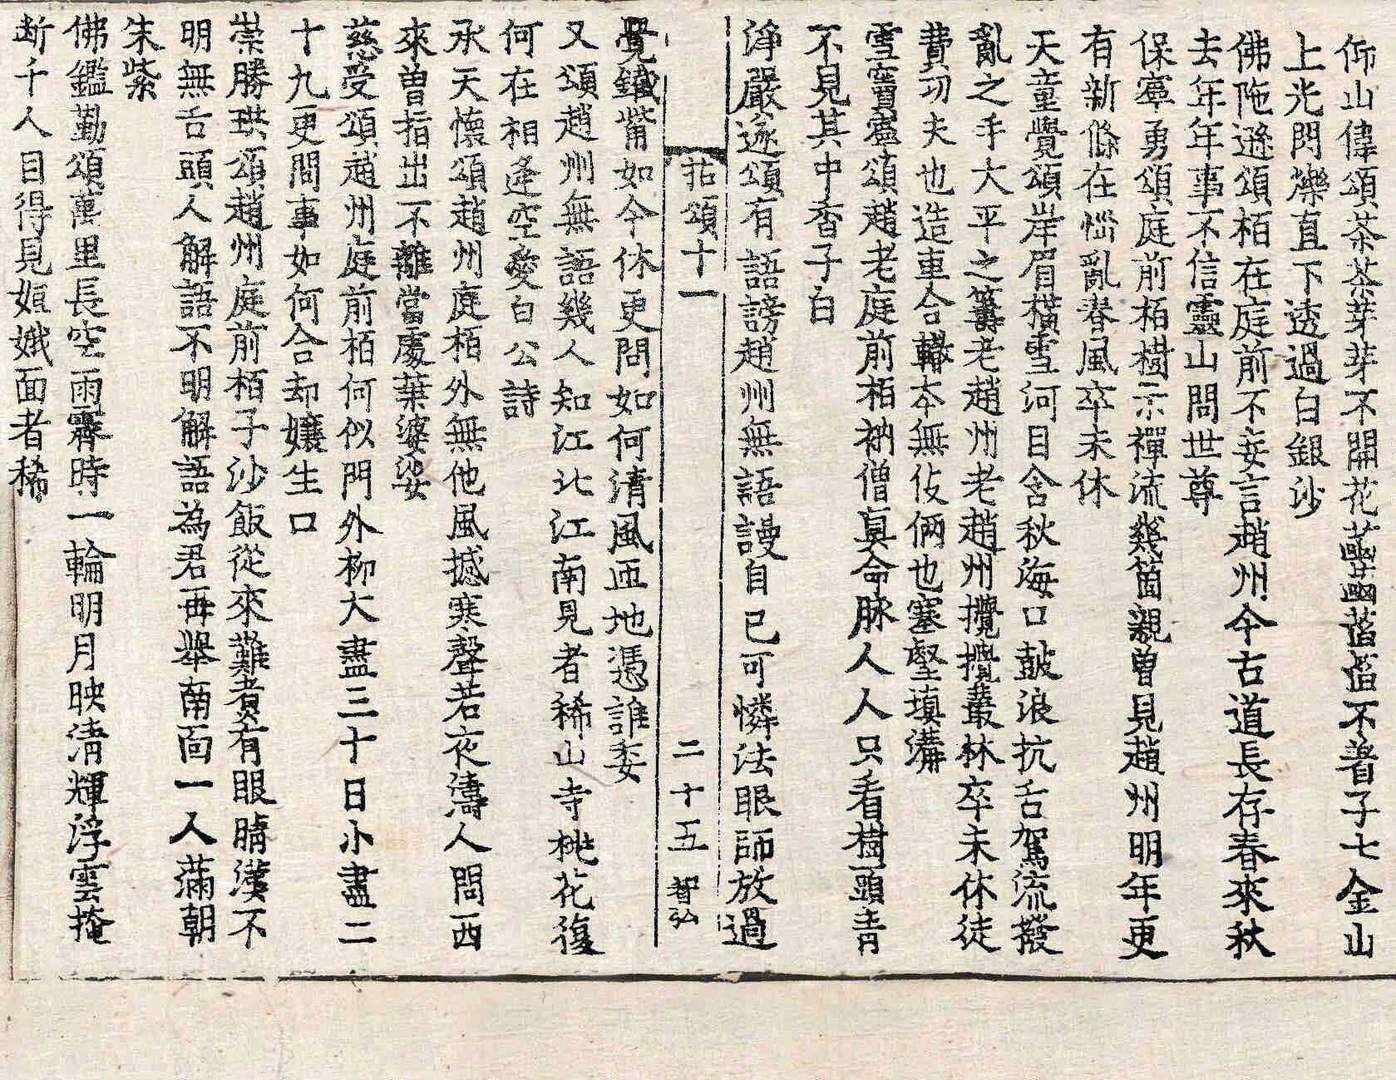 仰山偉頌茶茶芽芽不開花䔇䔇䔇䔇不着子七金山
上光閃爍直下透過白銀沙
佛陁遜頌栢在庭前不妄言趙州今古道長存春來秋
去年年事不信靈山問世尊
保寧勇頌庭前栢樹示禪流幾箇親曽見趙州明年更
有新條在惱亂春風卒未休
天童覺頌岸眉橫雪河目含秋海口鼓浪抗舌駕流撥
亂之手大平之籌老趙州老趙州攪攪叢林卒未休徒
費功夫也造車合轍夲無伎倆也塞壑填溝
雪竇寧頌趙老庭前栢衲僧真命脉人人只看樹頭青
不見其中香子白
淨嚴遂頌有語謗趙州無語謾自已可憐法眼師放過
拈頌十一 二十五 智弘
覺鐵觜如今休更問如何清風匝地憑誰委
又頌趙州無語幾人知江北江南見者稀山寺桃花復
何在相逢空愛白公詩
承天懷頌趙州庭栢外無他風撼寒聲若夜濤人問西
來曽指出不離當處葉婆娑
慈受頌趙州庭前栢何似門外柳大盡三十日小盡二
十九更問事如何合却孃生口
崇勝珙頌趙州庭前栢子沙飯從來難煑有眼睛漢不
明無舌頭人解語不明解語為君再舉南面一人滿朝
朱紫
佛鑑勤頌萬里長空雨霽時一輪明月映清輝浮雲掩
断千人目得見姮娥面者稀